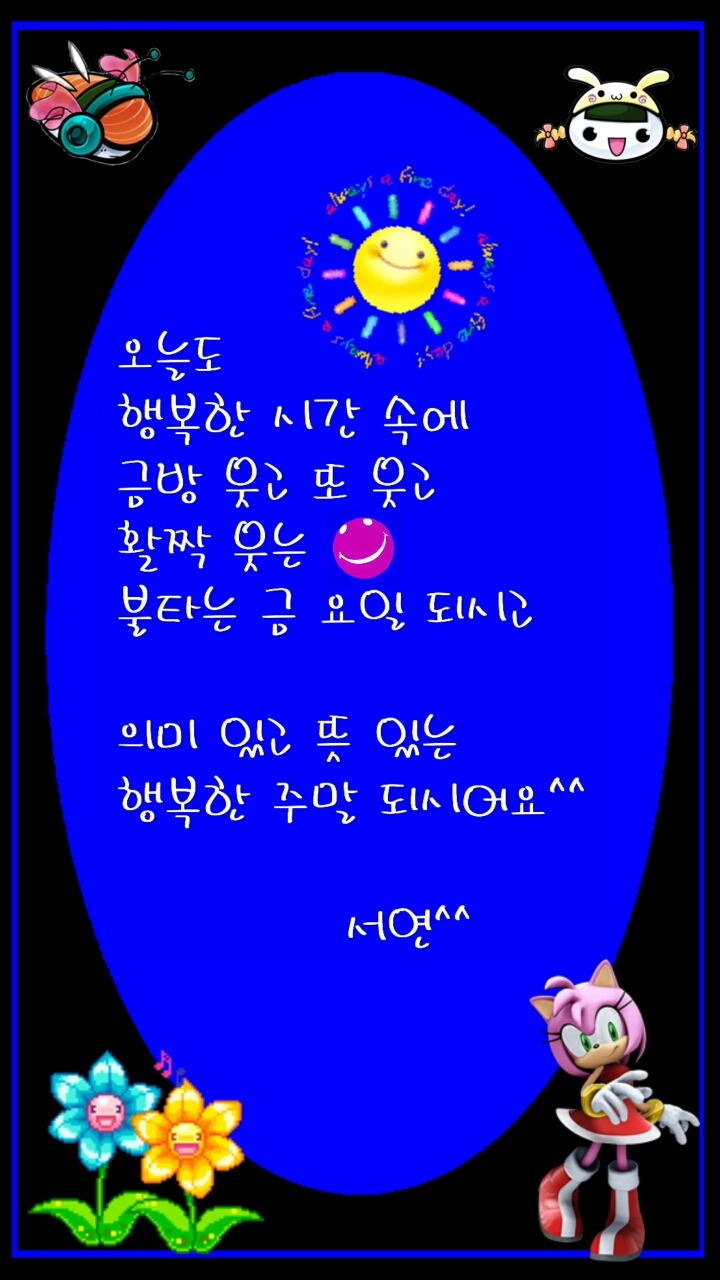 always a fine day!
always a fine day!
always a fine day!
오늘도
행복한 시간 속에
금방 웃고 또 웃고
활짝 웃는
불타는 금 요일 되시고
의미 있고 뜻 있는
행복한 주말 되시어요^^
서연^^